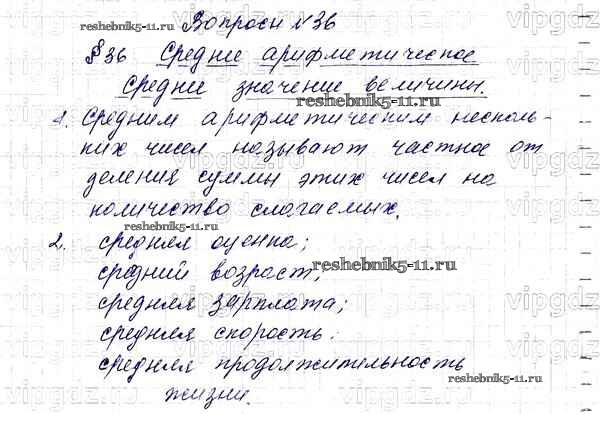 Вопросы №36
§36 Среднее арифметическое.
Среднее значение величины.
1. Средним арифметическим несколь-
ких чисел называют частное от
деления суммы этих чисел на
количество слагаемых.
2. средняя оценка;
средний возраст;
средняя зарплата;
средняя скорость;
средняя продолжительность
жизни.
reshebnik5-11.ru
reshebnik5-11.ru
reshebnik5-11.ru
reshebnik5-11.ru
reshebnik5-11.ru
vipgdz